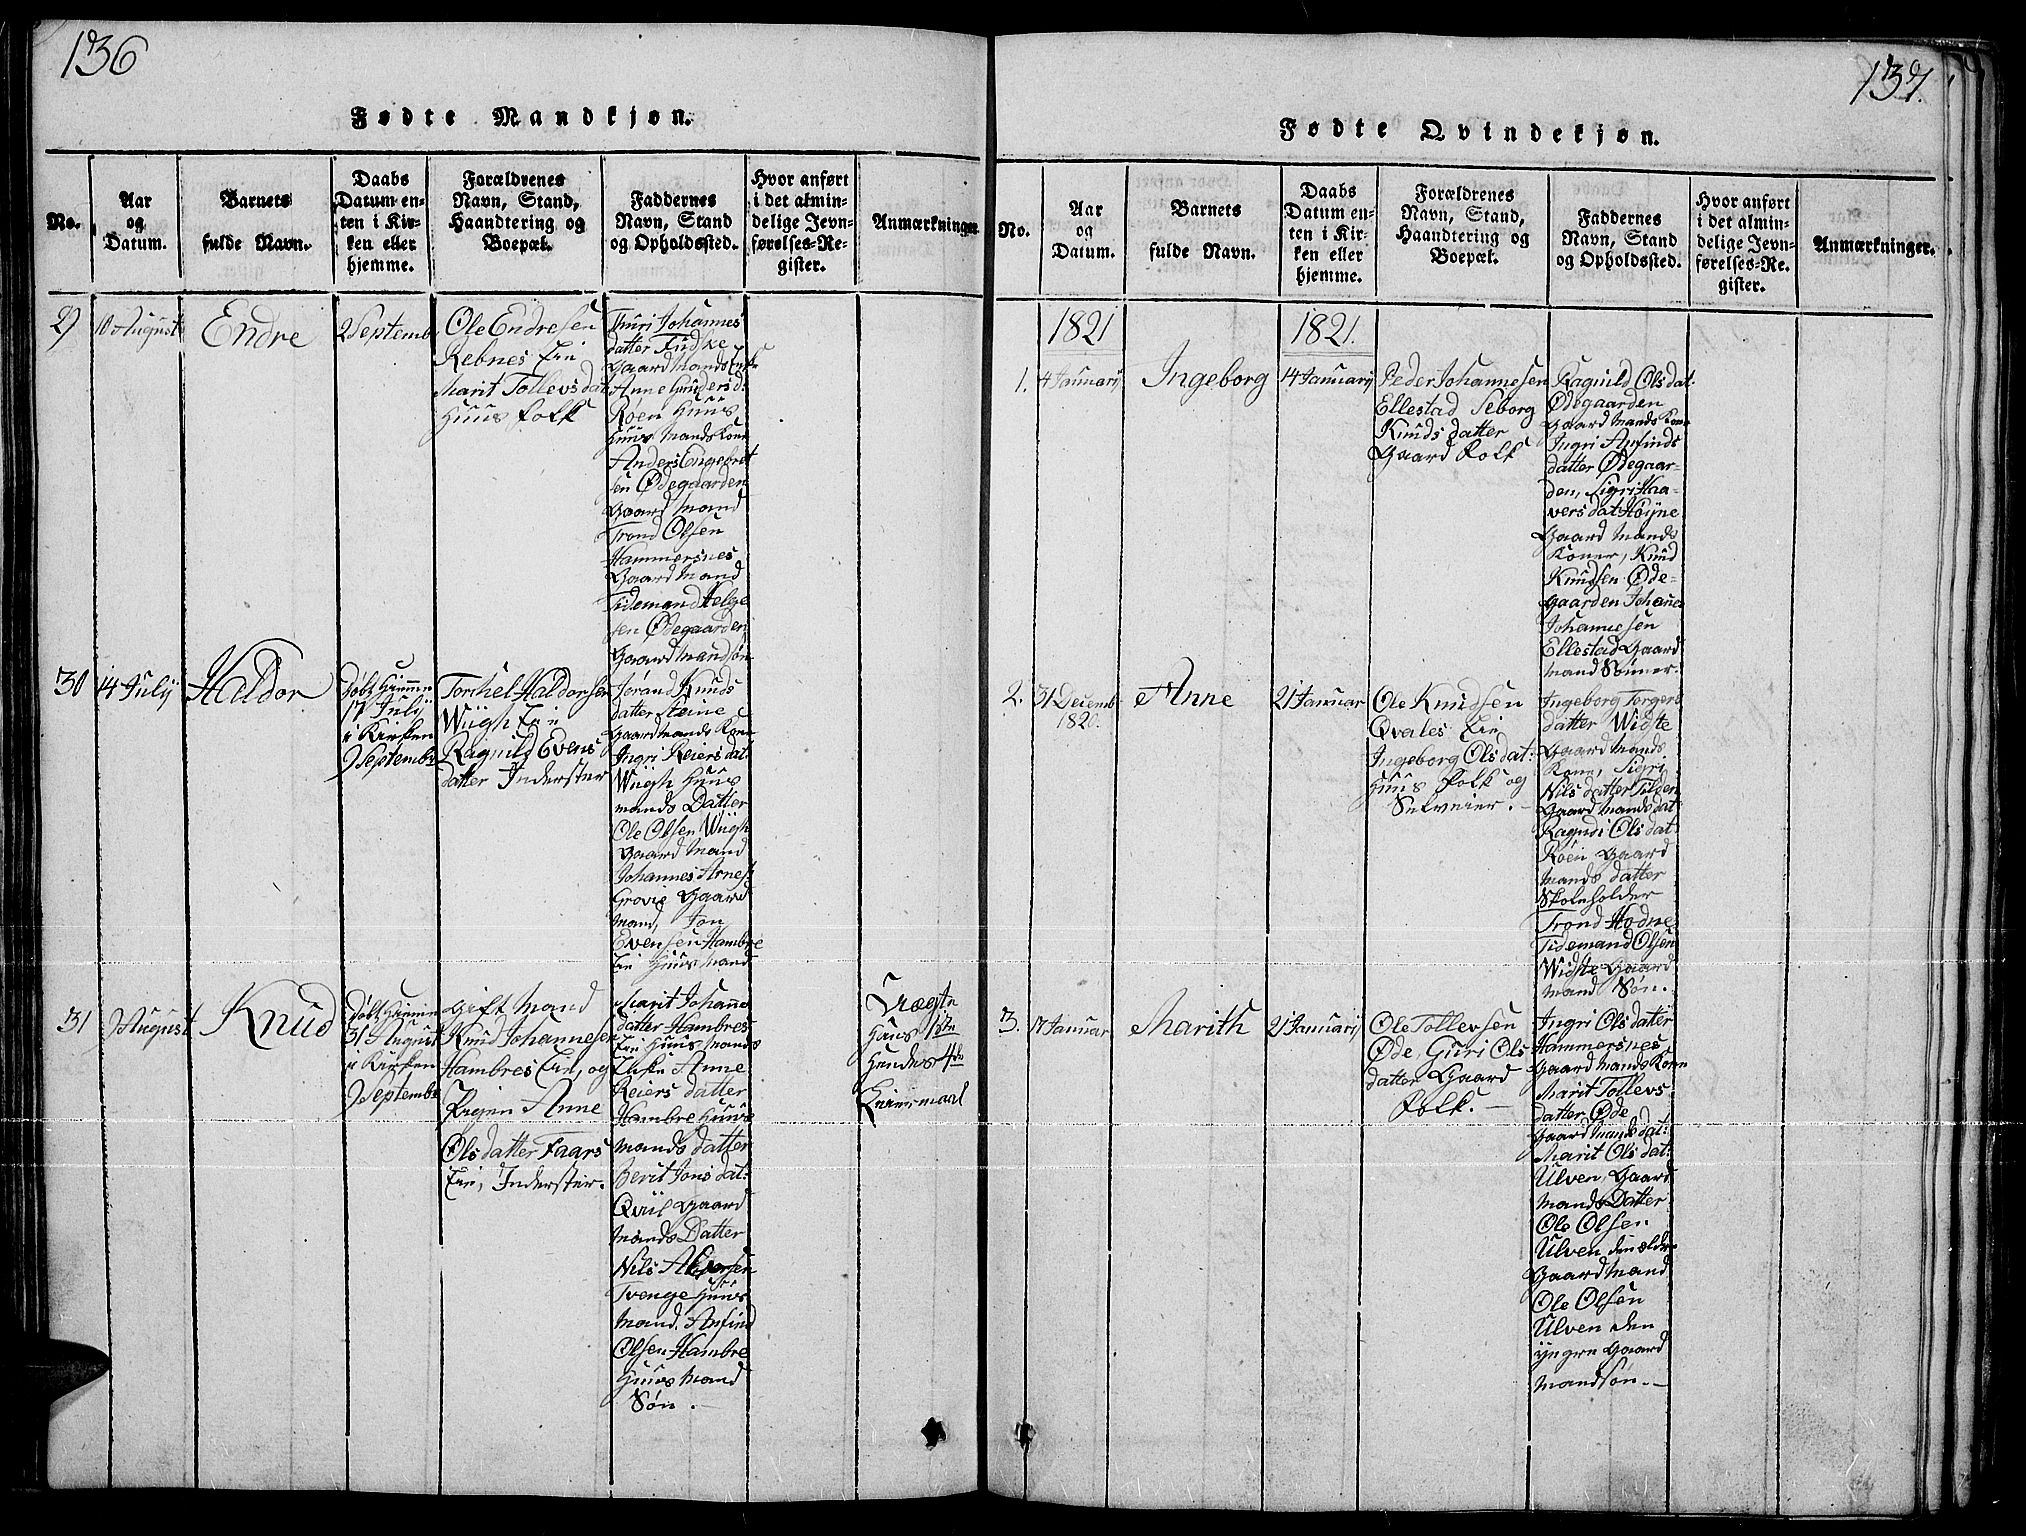 136
Fødte Mandkjøn.
No.
Aar
og
Datum.
Barnets
fulde Navn.
Daabs
Datum en-
ten i Kir-
ken eller
hjemme.
Forældrenes
Navn, Stand,
Haandtering og
Boepæl.
Faddernes
Navn, Stand
og Opholdssted.
Hvor anført
i det almin-
delige Jevn-
førelses-Re-
gister.
Anmærkninger
29
10 August
Endre
2 Septemb
Ole Endresen
Rebnes Eie
Marit Tollevs dat
Huus folk
Thuri Johannes
datter Fudske
Gaard Mands
Anne Gunders d:
Røen Huus
Huus Mands Kone
Anders Engebret
sen Ødegaarden
Gaard Mand
Trond Olsen
Hammersnes
Gaard Mand
Tidemand Helge
sen Ødegaarden
Gaard Mandsøn
30
14 Julij
Haldor
Døbt hiemme
17 Julij
i Kirken
9 Septembr
Torchel Haldorsen
Wiigh Eie
Ragnild Evens
datter Inderster
Jørand Knuds
datter Steine
Gaardmands Kone
Ingri Reiers dat
Wiigh Huus
mands Datter
Ole Olsen Wiigh
Gaard Mand
Johannes Arnes:
Grovie Gaard
Mand, Jon
Evensen Hambre
Eie Huus Mand
31
9 August
Knud
Døbt hiemme
31 August
i Kirken
9 Septembr
Gift Mand
Knud Johannesen
Hambres Eie, og
Pigen Anne
Ols datter Faars
Eie, Inderster.
Marit Johanne
datter Hambres
Eie Huus Mands
Enke Anne
Reiers datter
Hambre Huus
Mands datter
Berit Jons dat:
Qviil Gaard
Mands Datter
Nils
Tvenge Huus
Mand. Anfind
Olsen Hambre
Huus Mand
Søn.
Uægte
Hans 1ste
Hendes 4de
Leiermaal
137.
Fødte Qvindekjøn.
No.
Aar
og
Datum.
Barnets
fulde Navn.
Daabs
Datum en-
ten i Kir-
ken eller
hjemme.
Forældrenes
Navn, Stand,
Haandtering og
Boepæl.
Faddernes
Navn, Stand
og Opholdssted.
Hvor anført
i det almin-
delige Jevn-
førelses-Re-
gister.
Anmærkninger.
1821
1821.
1.
4 Januarij
Ingeborg
14 Januarij
Peder Johannesen
Ellestad Seborg
Knuds datter
Gaard Folk
Ragnild Ols dat.
Ødegaarden
Gaard Mands Kone
Ingri Anfinds
datter Ødegaar-
den, Sigri Haa-
vers dat Høyne
Gaard Mands
Koner, Knud
Knudsen Øde-
gaarden Johanes
Johannesen
Ellestad Gaard
Mand Sønner.
2.
31 Decemb
1820.
Anne
21 Januar
Ole Knudsen
Qvales Eie
Ingeborg Ols dat:
Huus Folk og
Selveier.
Ingeborg Torgers
datter Widste
Gaard Mands
Kone, Sigri
Nils datter Tilden
Gaard Mands dat
Ragndi Ols dat:
Roen Gaard
Mands datter
Skoleholder
Trond Hodne
Tidemand Olsen
Widste Gaard
Mand Søn.
3.
17 Januar
Marith
21 Januarij
Ole Tollevsen
Øde, Guri Ols
datter Gaard
Folk.
Ingri Ols datter
Hammersnes
Gaard Mands Kone
Marit Tollevs
datter Øde
Gaard Mands dat:
Marit Ols dat:
Ulven, Gaard
Mands Datter
Ole Olsen
Ulven den ældre
Gaard Mand
Ole Olsen
Ulven den
yngre Gaard
Mandsøn.